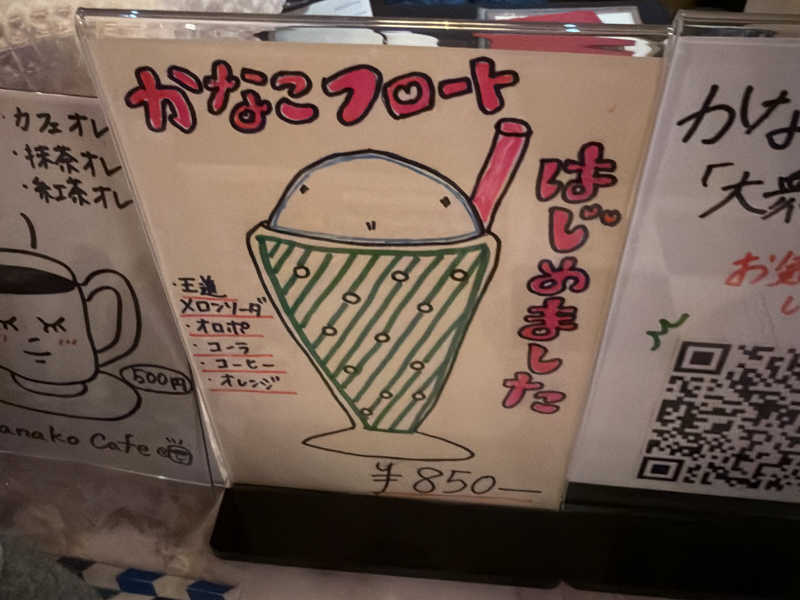 ・カフェオレ
・抹茶オレ
・紅茶オレ
500円
anako Cafe
かなこフロート
はじめました
・王道
メロンソーダ
・オロポ
・コーラ
・コーヒー
・オレンジ
¥850―
かな
「大衆
お